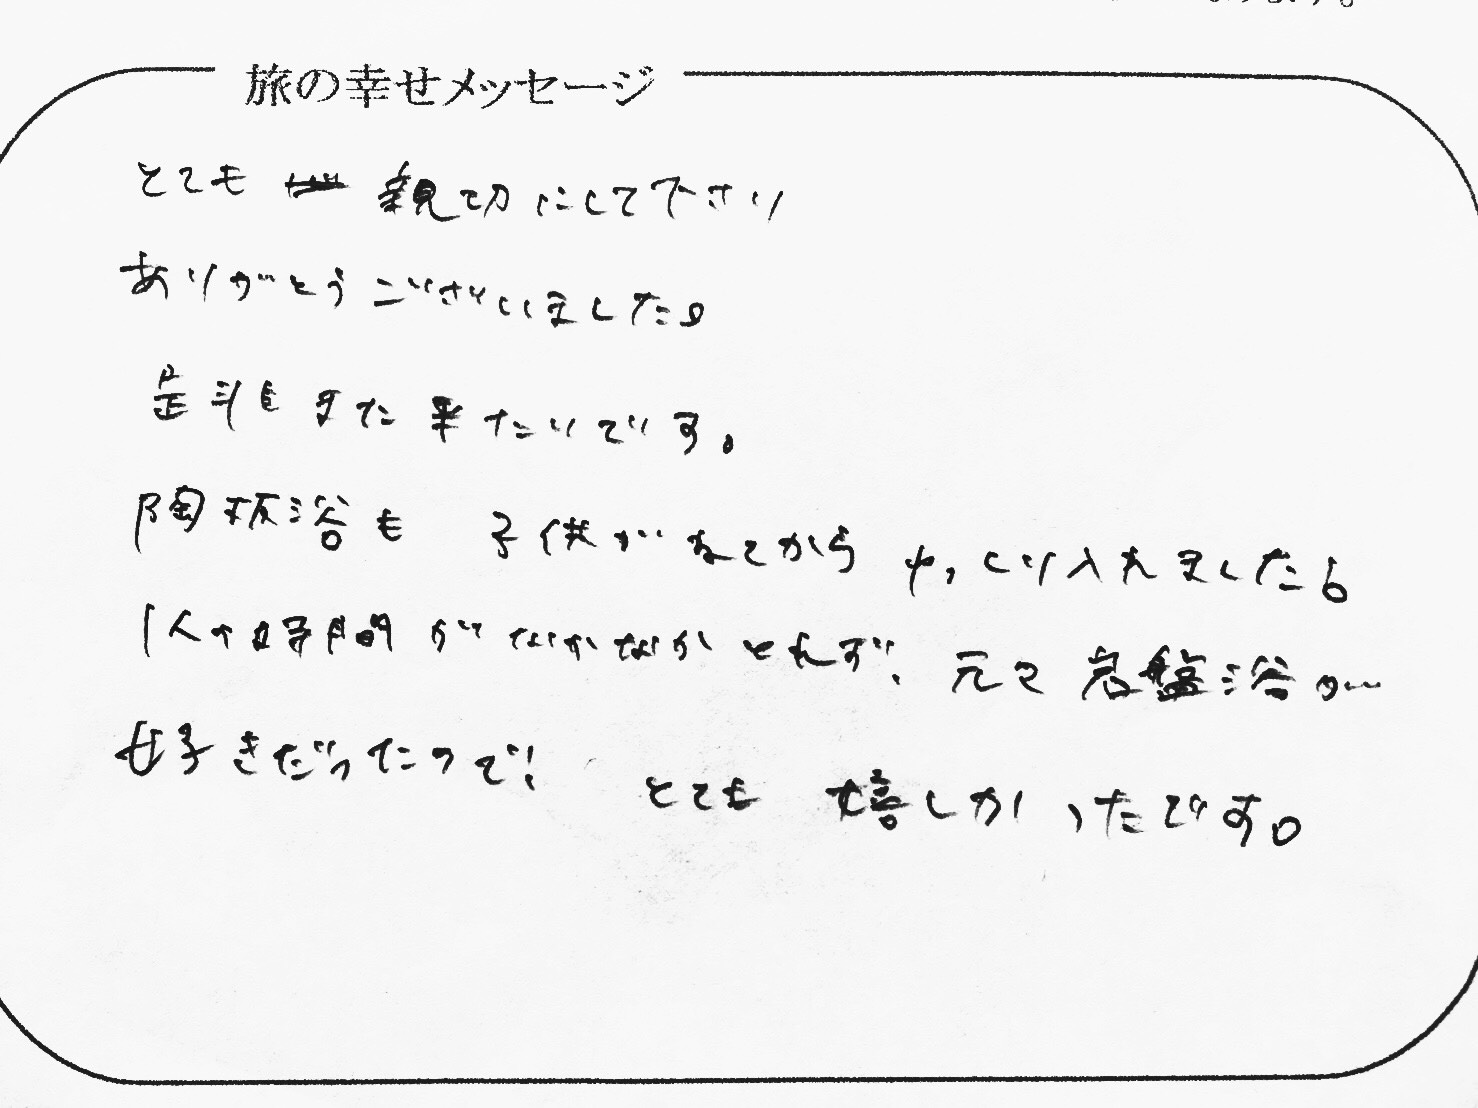 旅の幸せメッセージ
とても 親切にして下さり
ありがとうございました。
是非また来たいです。
陶板浴も 子供がねてから ゆっくり入れました。
1人の時間がなかなかとれず、元々岩盤浴が
好きだったので! とても 嬉しかったです。